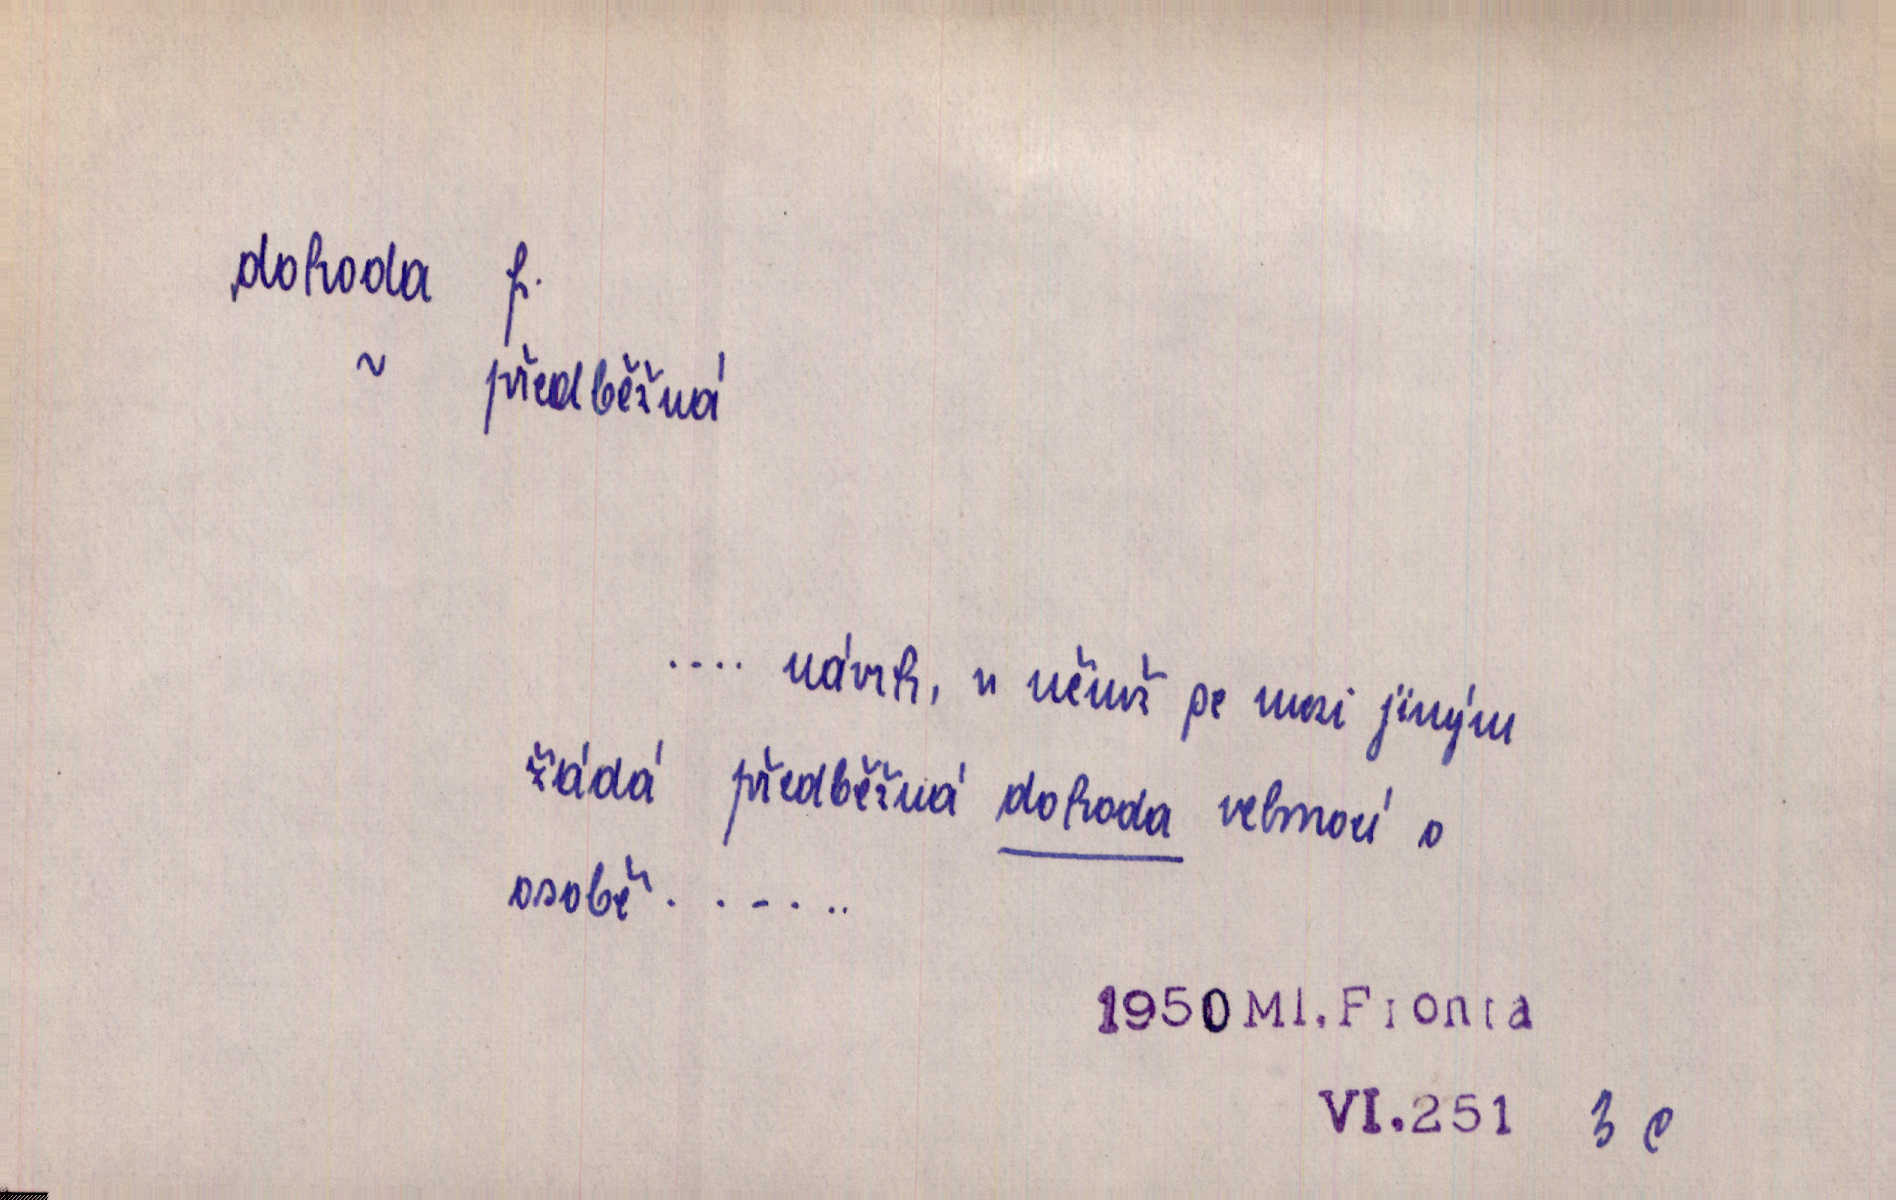 dohoda f.
~ předběžná
.... návrh, v němž se mezi jiným
žádá předběžná dohoda velmocí o
osobě . . - . ..
1950 Ml. Fronta
VI.251 3 c